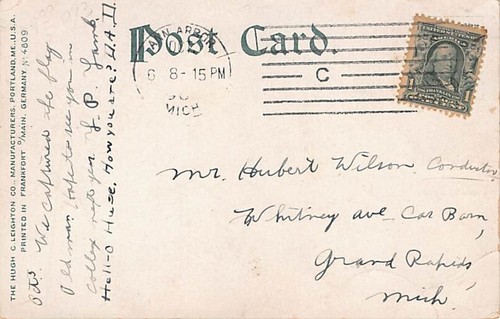 Post Card.
ANN ARBOR
6 8-15 PM
MICH
C
THE HUGH C. LEIGHTON CO., MANUFACTURERS, PORTLAND, ME., U.S.A.
PRINTED IN FRANKFORT O/MAIN, GERMANY Nº 4809
We captured the flag
Old man, hope to see you in
next yr. L. P. Lamb.
Hell-O Huse, How you are?
Mr Hubert Wilson, Conductor
Whitney ave Car Barn,
Grand Rapids
Mich